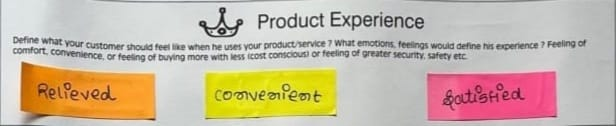 Product Experience
Define what your customer should feel like when he uses your product/service ? What emotions, feelings would define his experience ? Feeling of
comfort, convenience, or feeling of buying more with less (cost conscious) or feeling of greater security, safety etc.
Relieved
convenient
Satisfied